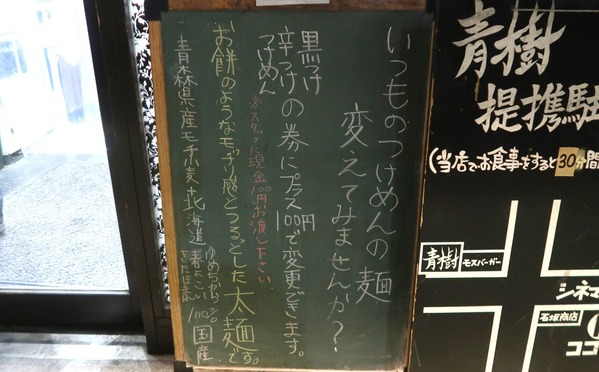 いつものつけめんの麺
変えてみませんか?
黒つけ
辛つけの券にプラス100円で変更できます。
つけめん
※スタッフに現金100円お渡し下さい。
お餅のようなモッチリ感とつるつるとした太麺です。
青森県産モチ小麦 北海道
ゆめちから
春よこい
きたほなみ
100%
国産
青樹
提携駐
(当店でお食事をすると30分間
青樹
モスバーガー
シネマ
石塚商店
ココ